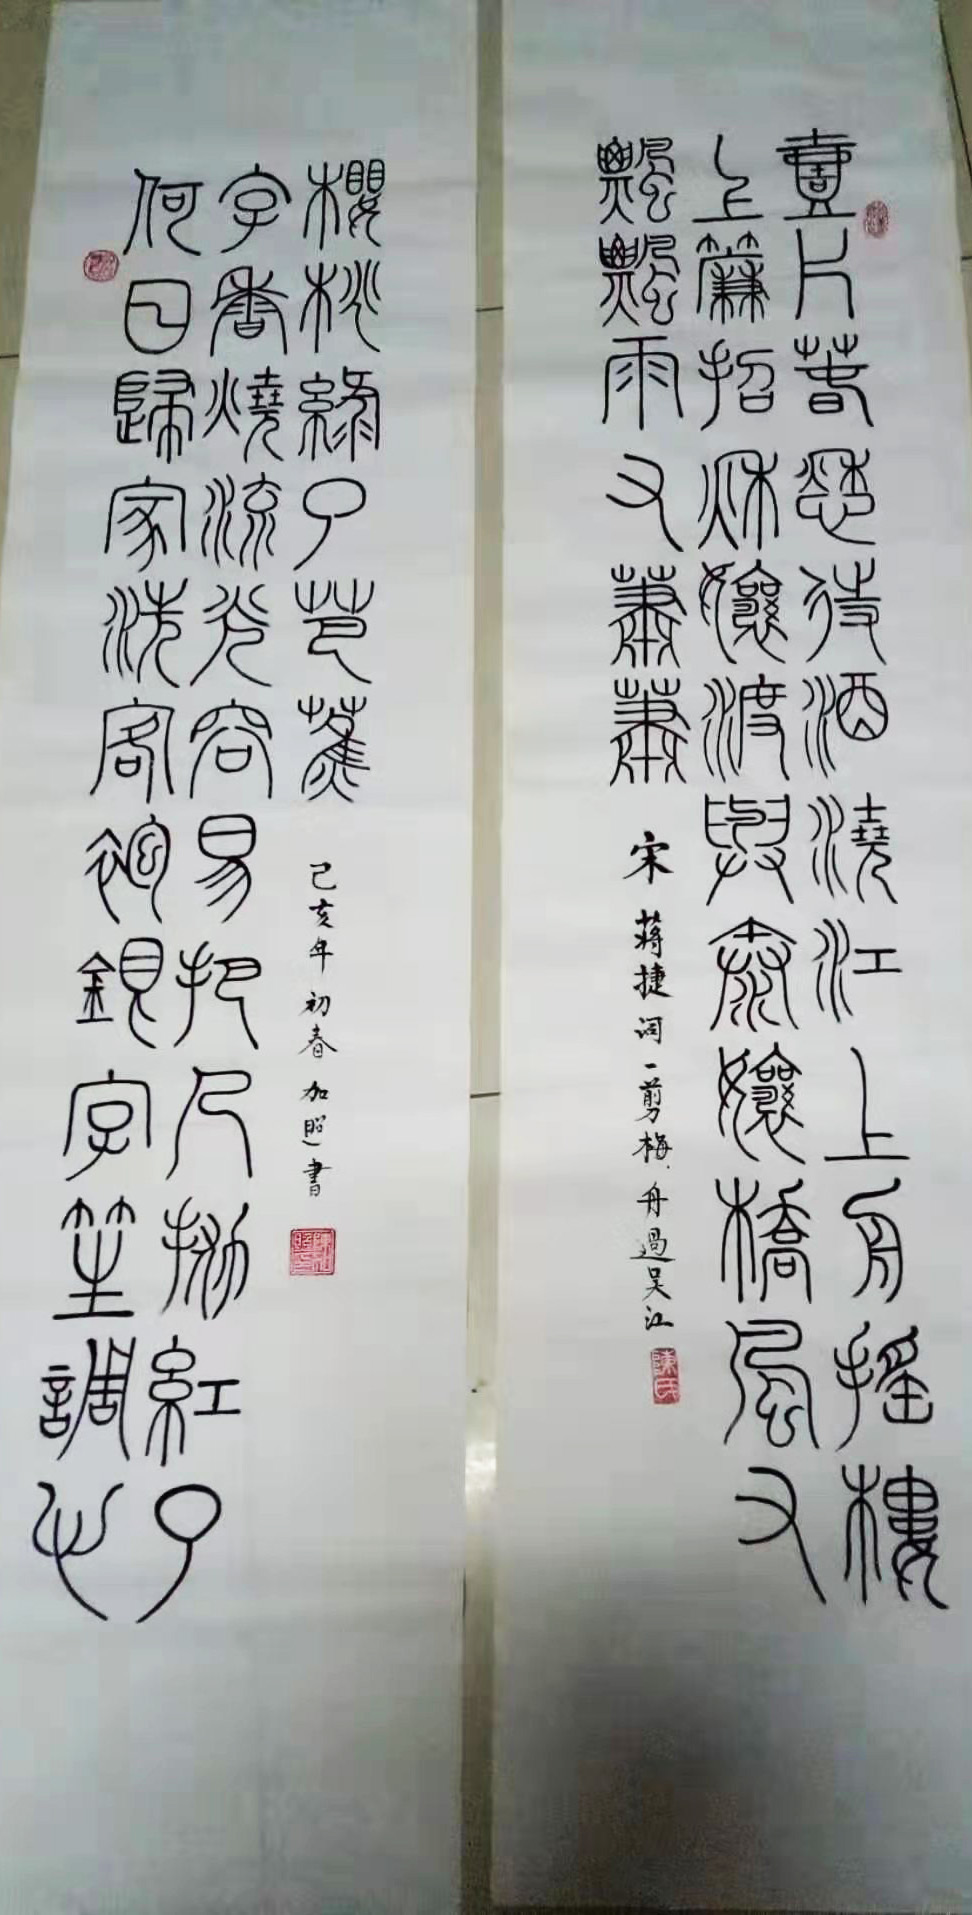 壹片春愁待酒澆江上舟搖樓
上簾招秋孃渡與泰孃橋風又
飄飄雨又蕭蕭
宋 蔣捷词一剪梅.舟過吴江
陳氏
何日歸家洗客袍銀字笙調心
字香燒流光容易把人拋紅了
櫻桃綠了芭蕉
己亥年初春 加照書